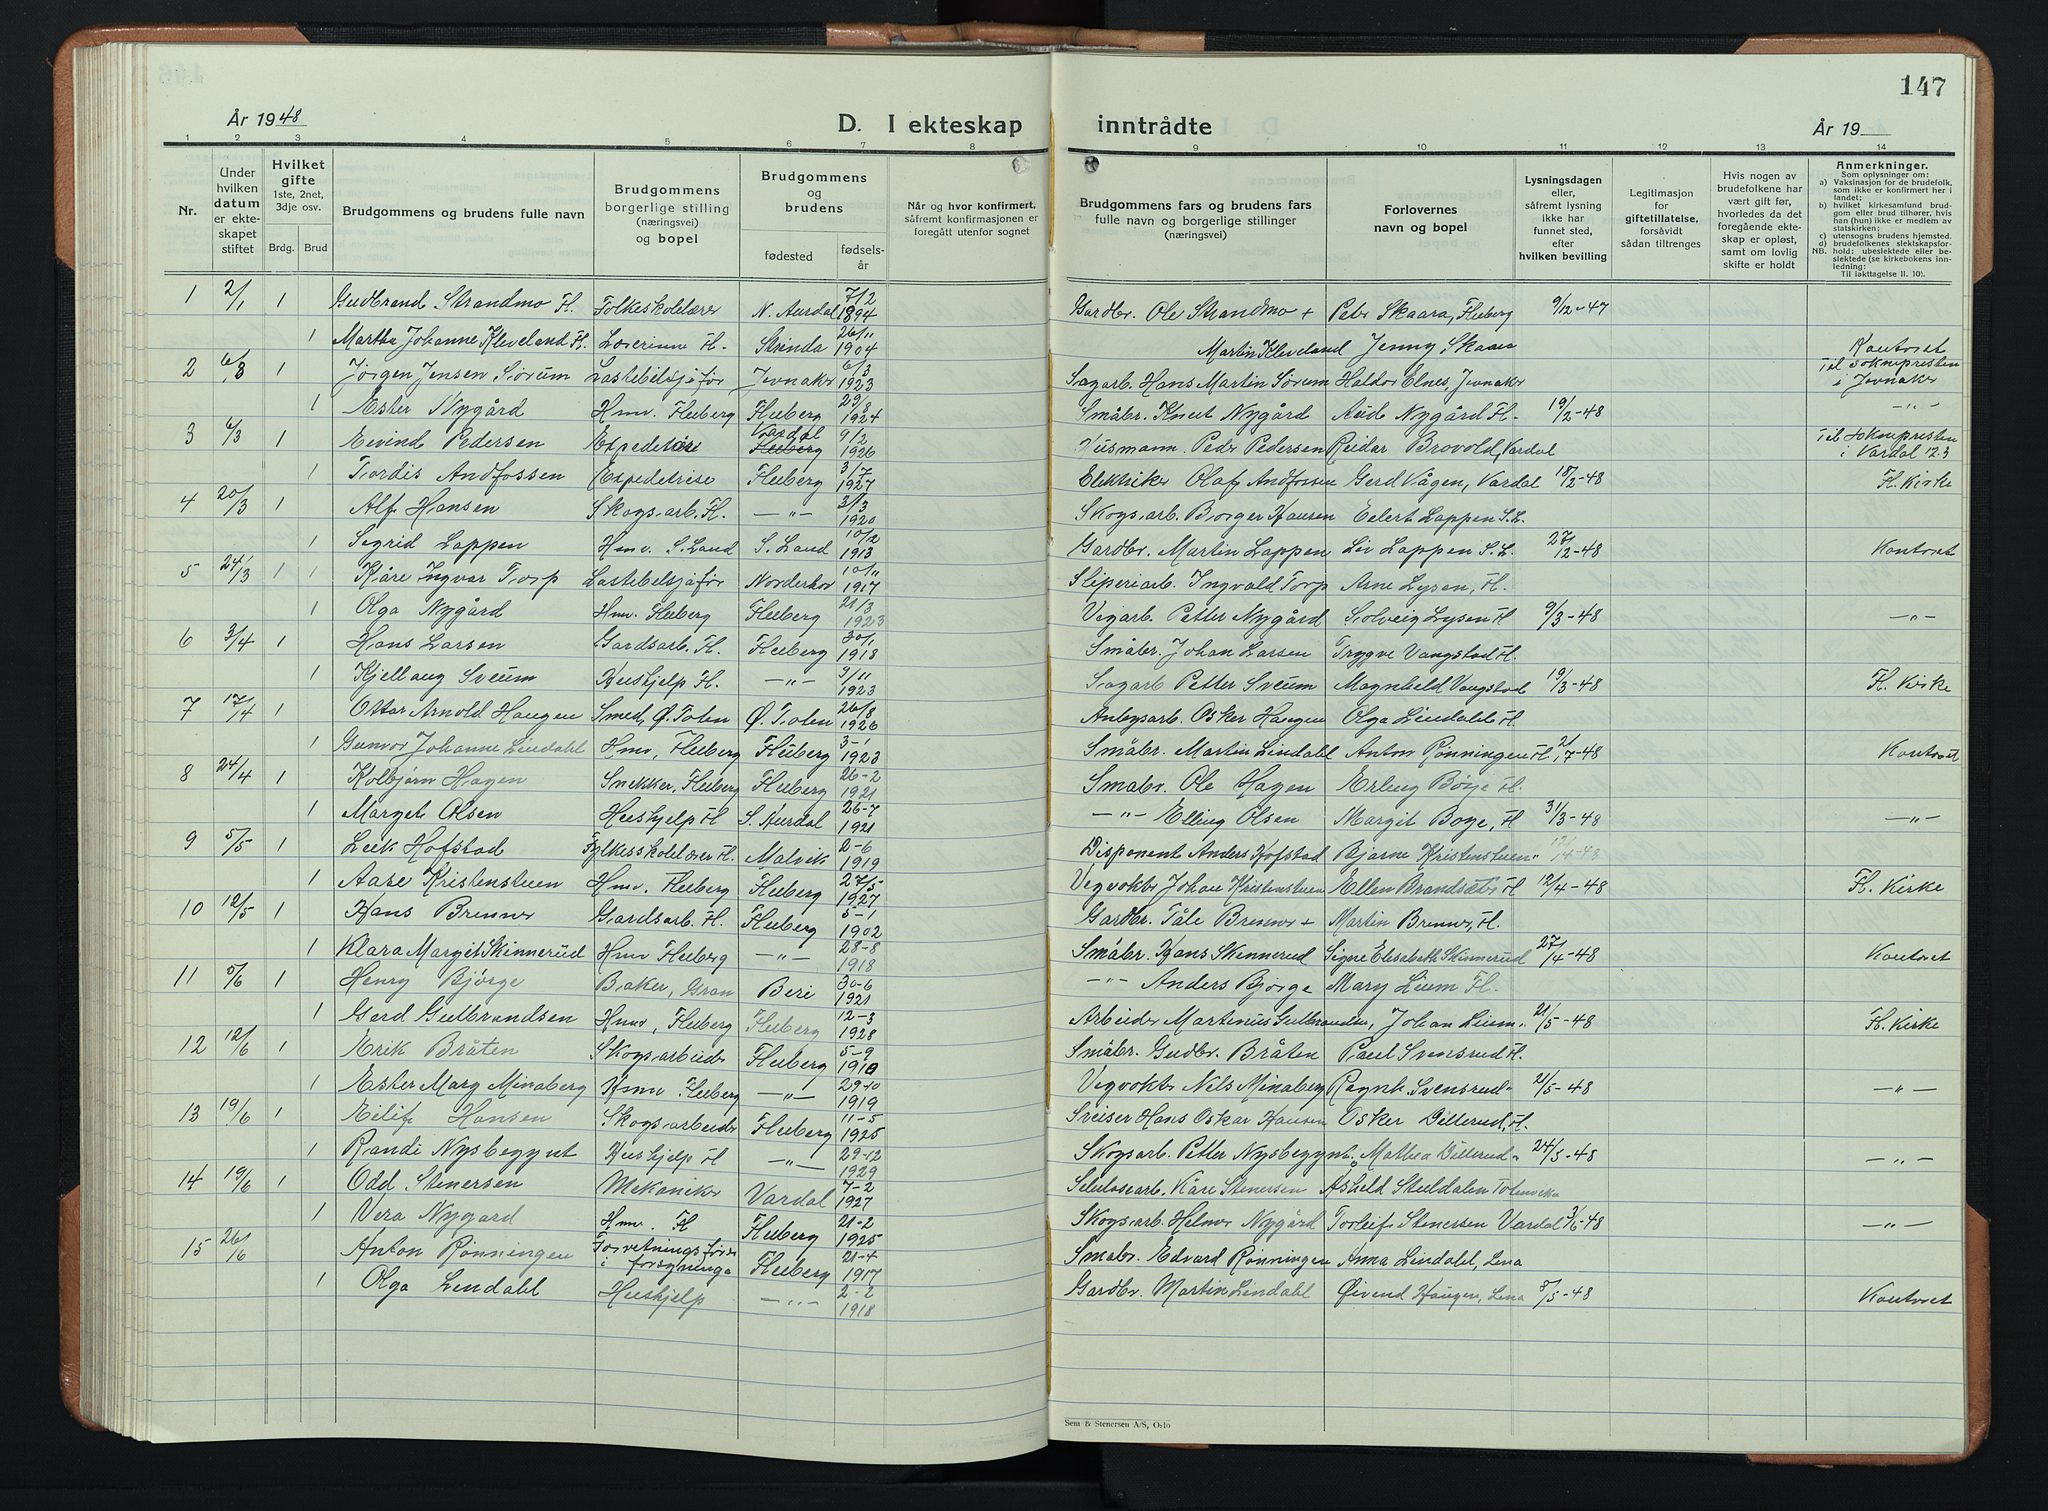 147
År 1948
D. I ekteskap inntrådte
År 19
1 2 3 4 5 6 7 8 9 10 11 12 13 14
Nr.
Under hvilken datum er ekteskapet stiftet
Hvilket gifte 1ste, 2net, 3dje osv.
Brdg. Brud
Brudgommens og brudens fulle navn
Brudgommens borgerlige stilling (næringsvei) og bopel
Brudgommens og brudens
fødested
fødselsår
Når og hvor konfirmert, såfremt konfirmasjonen er foregått utenfor sognet
Brudgommens fars og brudens fars fulle navn og borgerlige stillinger (næringsvei)
Forlovernes navn og bopel
Lysningsdagen eller, såfremt lysning ikke har funnet sted, efter hvilken bevilling
Legitimasjon for giftetillatelse, forsåvidt sådan tiltrenges
Hvis nogen av brudefolkene har vært gift før, hvorledes da det foregående ekteskap er opløst, samt om lovlig skifte er holdt
Anmerkninger.
Som oplysninger om:
a) Vaksinasjon for de brudefolk, som ikke er konfirmert her i landet;
b) hvilket kirkesamfund brudgom eller brud tilhører, hvis han (hun) ikke er medlem av statskirken;
c) utensogns brudens hjemsted.
d) brudefolkenes slektskapsforhold: ubeslektede eller beslektede (se kirkebokens innledning:
NB. Til iakttagelse II. 10).
1 2/1 1 Gudbrand Strandmo Fl. Folkeskolelærer N. Aurdal 7/2 1894 Gardbr. Ole Strandmo + Peter Skaara, Fluberg 9/12-47
1 Martha Johanne Kleveland Fl. Lærerinne Fl. Strinda 26/11 1904 Martin Kleveland Jenny Skaara Kontoret
2 6/3 1 Jørgen Jensen Sørum Lastebilsjåfør Jevnaker 6/3 1923 Sagarb. Hans Martin Sørum Haldor Elnes, Jevnaker Til soknepresten i Jevnaker
1 Ester Nygård Hmv. Fluberg Fluberg 29/8 1924 Småbr. Knut Nygård Nygård Fl. 19/2-48 -"-
3 6/3 1 Eivind Pedersen Vardal Fluberg 9/2 1926 Husmann Peder Pedersen Reidar Brovold, Vardal Til soknepresten i Vardal 12.3
1 Tordis Andfossen Expeditrise Fluberg 3/7 1927 Elektriker Olaf Andfossen Gerd Vågen, Vardal 18/2-48 Fl. Kirke
4 20/3 1 Alf Hansen Skogsarb. Fl. -"- 31/3 1920 Skogsarb. Borger Hansen Eilert Lappen S.L.
1 Sigrid Lappen Hmv. S. Land S. Land 10/2 1913 Gardbr. Martin Lappen Liv Lappen S.L. 27/2-48 Kontoret
5 24/3 1 1 Kåre Ingvar Torp Lastebilsjåfør Norderhov 10/11 1917 Sliperiarb. Ingvald Torp Arne Lysen, Fl.
1 Olga Nygård Hmv. Fluberg Fluberg 21/3 1923 Vegarb. Petter Nygård Solveig Lysen Fl 9/3-48 -"-
6 3/4 1 Hans Larsen Gardsarb. Fl. Fluberg 30/1 1918 Småbr. Johan Larsen Trygve Vangstad Fl.
1 Kjellaug Sveum Hushjelp Fl. -"- 9/11 1923 Sagarb Petter Sveum Magnhild Vangstad 19/3-48 Fl. Kirke
7 17/4 1 Ottar Arnold Haugen Smed, Ø. Toten Ø. Toten 26/8 1920 Anlegsarb. Oskar Haugen Olga Lindahl Fl.
1 Gunvor Johanne Lindahl Hmv, Fluberg Fluberg 3-1 1923 Småbr. Martin Lindahl Anton Rønningen Fl 48 Kontoret
8 24/4 1 Kolbjørn Hagen Snekker, Fluberg Fluberg 26-2 1921 Småbr. Ole Hagen Erling Børje Fl.
1 Margit Olsen Hushjelp Fl S. Aurdal 26-7 1921 -"- Elling Olsen Margit Børje, Fl 31/3-48 -"-
9 5/5 1 Leik Hofstad Fylkesskolelærer Fl. Malvik 2-6 1919 Disponent Anders Hofstad Bjarne Kristenstuen " 12/4-48
1 Aase Kristenstuen Hmv. Fluberg Fluberg 27/5 1927 Vegvokter Johan Kristenstuen Ellen Brandsæter Fl 12/4-48 Fl. Kirke
10 12/5 1 Hans Brenner Gardsarb. Fl. Fluberg 5-1 1902 Gardbr. Tåle Brenner + Martin Brenner, Fl.
1 Klara Margit Skinnerud Hmv Fluberg -"- 28-8 1918 Småbr. Hans Skinnerud Signe Elisabeth Skinnerud 27/4-48 Kontoret
11 5/6 1 Henry Bjørge Baker, Gran Biri 30-6 1921 -"- Anders Bjørge Mary Lium Fl.
1 Gerd Gulbrandsen Hmv, Fluberg Fluberg 12-3 1928 Arbeider Martinus Gulbrandsen, Johan Lium " 21/5-48 Fl. Kirke
12 12/6 1 Erik Bråten Skogsarbeider Fluberg 5-9 1910 Småbr. Gudbr. Bråten Paul Svensrud Fl.
1 Ester Mary Minaberg Hmv Fluberg -"- 29-10 1919 Vegvokter Nils Minaberg Ragnh. Svensrud " 21/5-48 -"-
13 19/6 1 Eilif Hansen Skogsarbeider Fluberg 11-5 1925 Sveiser Hans Oskar Hansen Oskar Dillerud, Fl.
1 Randi Nysbegynt Hushjelp Fl -"- 29-12 1929 Skogsarb. Petter Nysbegynt Mathea Dillerud " 24/5-48 -"-
14 19/6 1 Odd Stenersen Mekaniker Vardal 7-2 1927 Celulosearb. Kåre Stenersen Åshild Skuldalen Totenvika
1 Vera Nygard Hmv. Fl Fluberg 21-2 1925 Skogsarb. Helmer Nygård Torleif Stenersen Vardal 3/6-48 -"-
15 26/6 1 Anton Rønningen Forretningsfører i forsyninga Fluberg 21-4 1917 Småbr. Edvard Rønningen Anna Lindahl, Lena
1 Olga Lindahl Hushjelp -"- 2-2 1918 Gardbr. Martin Lindahl Øivind Haugen, Lena 8/5-48 Kontoret
Sem & Stenersen A/S, Oslo